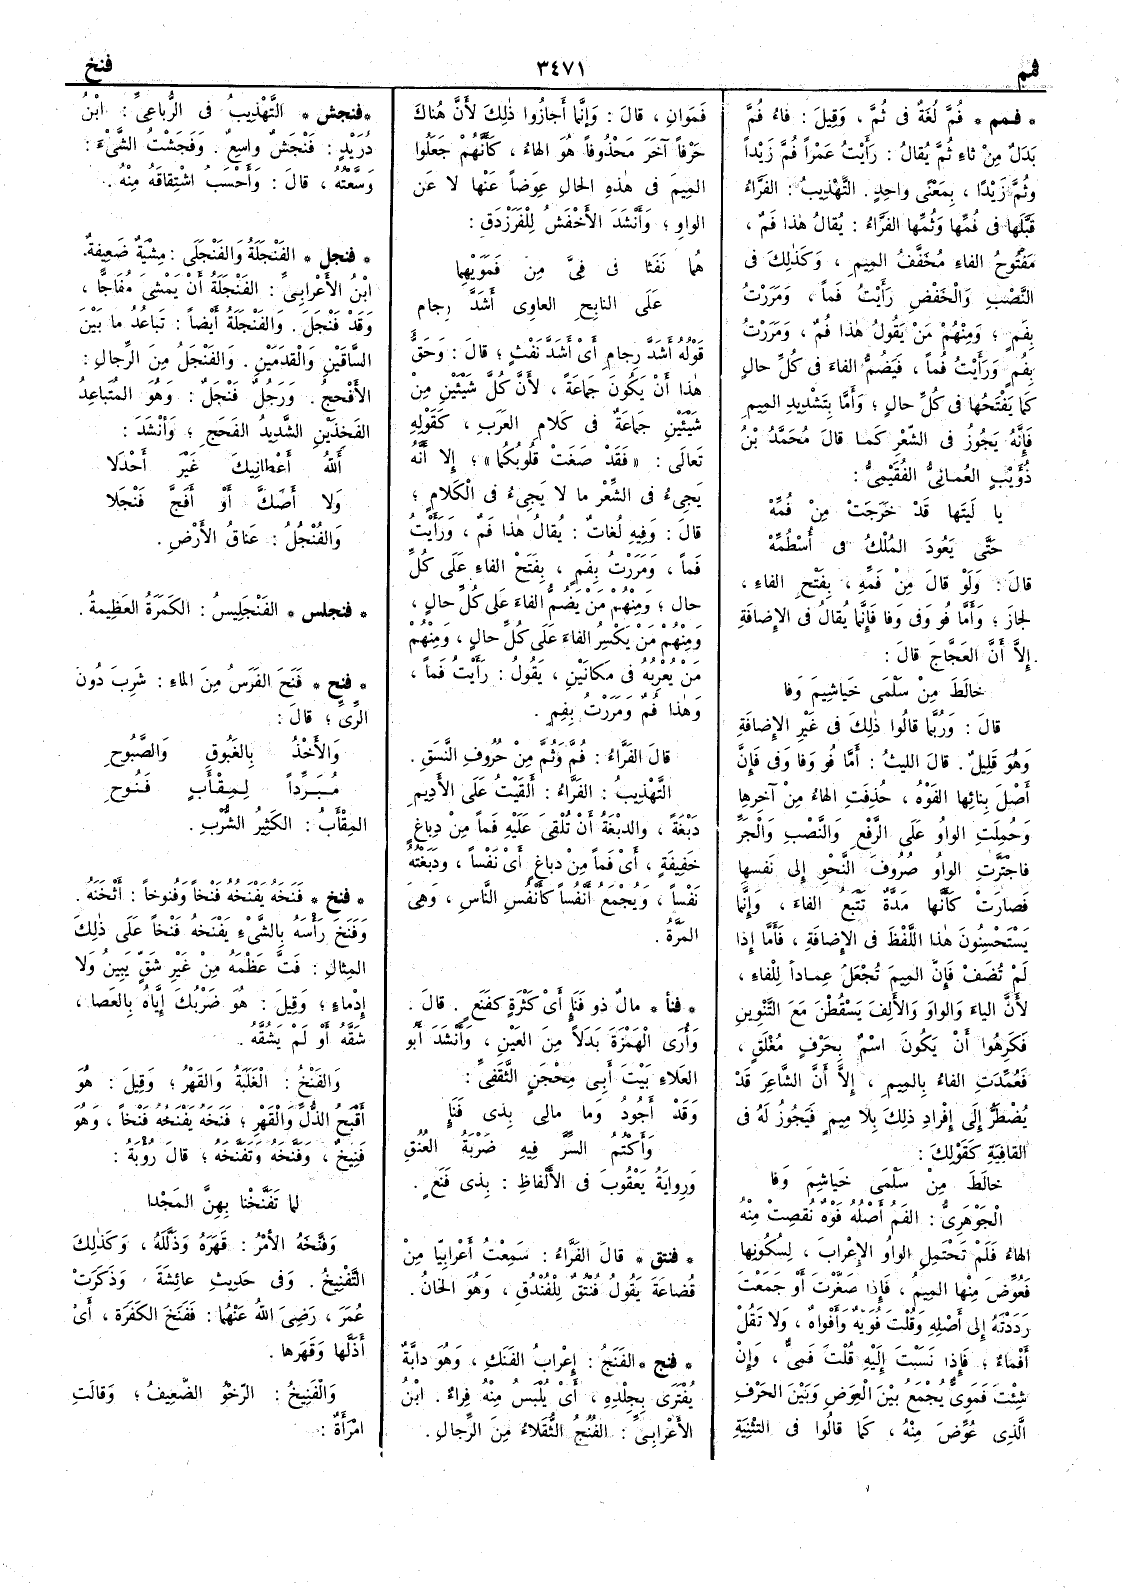 فمم
٣٤٧١
فنخ
* فمم * فُمَّ لُغَةٌ فى ثُمَّ ، وَقِيلَ : فاءُ فُمَّ
بَدَلٌ مِنْ ثاءِ ثُمَّ يُقالُ : رَأَيْتُ عَمْراً فُمَّ زَيْداً
وثُمَّ زَيْدًا ، بِمَعْنًى واحِدٍ . التَّهْذِيبُ : الفَرَّاءُ
قَبَّلَها فى فُمِّها وَثُمِّها الفَرَّاءُ : يُقالُ هٰذا فَمٌ ،
مَفْتُوحُ الفاءِ مُخَفَّفُ المِيمِ ، وَكَذٰلِكَ فى
النَّصْبِ وَالْخَفْضِ رَأَيْتُ فَماً ، وَمَرَرْتُ
بِفَمٍ ؛ وَمِنْهُمْ مَنْ يَقُولُ هٰذا فُمٌ ، وَمَرَرْتُ
بِفُمٍ وَرَأَيْتُ فُماً ، فَيَضُمُّ الفاءَ فى كُلِّ حالٍ
كَما يَفْتَحُها فى كُلِّ حالٍ ؛ وَأَمَّا بِتَشْدِيدِ المِيمِ
فَإِنَّهُ يَجُوزُ فى الشِّعْرِ كَمـا قالَ مُحَمَّدُ بْنُ
ذُؤَيْبٍ العمـانِىُّ الفُقَيْمِىُّ :
يا لَيْتَها قَدْ خَرَجَتْ مِنْ فُمِّهْ
حَتَّى يَعُودَ المُلْكُ فى أُسْطُمِّهْ
قالَ : وَلَوْ قالَ مِنْ فَمِّهِ ، بِفَتْحِ الفاءِ ،
لجازَ ؛ وَأَمَّا فُو وَفى وَفا فَإِنَّما يُقالُ فى الإِضافَةِ
إِلاَّ أَنَّ العَجَّاجَ قالَ :
خالَطَ مِنْ سَلْمَى خَياشِيمَ وَفا
قالَ : وَرُبَّما قالُوا ذٰلِكَ فى غَيْرِ الإِضافَةِ
وَهُوَ قَلِيلٌ . قالَ الليْثُ : أَمَّا فُو وَفا وَفى فَإِنَّ
أَصْلَ بِنائِها الفَوْهُ ، حُذِفَتِ الهاءُ مِنْ آخِرِها
وَحُمِلَتِ الواوُ عَلَى الرَّفْعِ وَالنَّصْبِ وَالْجَرِّ
فاجْتَرَّتِ الواوُ صُرُوفَ النَّحْوِ إِلى نَفسِها
فَصارَتْ كَأَنَّها مَدَّةٌ تَتْبَعُ الفاءَ ، وَإِنَّما
يَسْتَحْسِنُونَ هٰذا اللَّفْظَ فى الإِضافَةِ ، فَأَمَّا إِذا
لَمْ تُضَفْ فَإِنَّ المِيمَ تُجْعَلُ عِمـاداً لِلْفاءِ ،
لأَنَّ الياءَ وَالواوَ وَالأَلِفَ يَسْقُطْنَ مَعَ التَّنْوِينِ
فَكَرِهُوا أَنْ يَكُونَ اسْمٌ بِحَرْفٍ مُغْلَقٍ ،
فَعُمِّدَتِ الفاءُ بِالمِيمِ ، إِلاَّ أَنَّ الشَّاعِرَ قَدْ
يُضْطَرُّ إِلى إِفْرادِ ذٰلِكَ بِلا مِيمٍ فَيَجُوزُ لَهُ فى
القافِيَةِ كَقَوْلِكَ :
خالَطَ مِنْ سَلْمَى خَياشِمَ وَفا
الْجَوْهَرِىُّ : الفَمُ أَصْلُهُ فَوْهٌ نُقِصَتْ مِنْهُ
الهاءُ فَلَمْ تَحْتَمِلِ الواوُ الإِعْرابَ ، لِسُكُونِها
فَعُوِّضَ مِنْها المِيمُ ، فَإِذا صَغَّرْتَ أَوْ جَمَعْتَ
رَدَدْتَهُ إِلى أَصْلِهِ وَقُلْتَ فُوَيْهٌ وَأَفْواهٌ ، وَلا تَقُلْ
أَفْماءٌ ؛ فَإِذا نَسَبْتَ إِلَيْهِ قُلْتَ فَمِىٌّ ، وَإِنْ
شِئْتَ فَمَوِىٌّ يُجْمَعُ بَيْنَ العِوَضِ وَبَيْنَ الحَرْفِ
الَّذِى عُوِّضَ مِنْهُ ، كَما قالُوا فى التثنِيَةِ
فَمَوانِ ، قالَ : وَإِنَّما أَجازُوا ذٰلِكَ لأَنَّ هُناكَ
حَرْفاً آخَرَ مَحْذُوفاً هُوَ الهاءُ ، كَأَنَّهُمْ جَعَلُوا
المِيمَ فى هٰذِهِ الحالِ عِوَضاً عَنْها لا عَنِ
الواوِ ؛ وَأَنْشَدَ الأَخْفَشُ لِلْفَرَزْدَقِ :
هُما نَفَثا فى فِىَّ مِنْ فَمَوَيْهِما
عَلَى النابِحِ العاوِى أَشَدَّ رِجامِ
قَوْلُهُ أَشَدَّ رِجامِ أَىْ أَشَدَّ نَفْثٍ ؛ قالَ : وَحَقُّ
هٰذا أَنْ يَكُونَ جَماعَةً ، لأَنَّ كُلَّ شَيْئَيْنِ مِنْ
شَيْئَيْنِ جَماعَةٌ فى كَلامِ العَرَبِ ، كَقَوْلِهِ
تَعالَى : «فَقَدْ صَغَتْ قُلُوبُكُما» ؛ إِلا أَنَّهُ
يَجِىءُ فى الشِّعْرِ ما لا يَجِىءُ فى الْكَلامِ ؛
قالَ : وَفِيهِ لُغاتٌ : يُقالُ هٰذا فَمٌ ، وَرَأَيْتُ
فَماً ، وَمَرَرْتُ بِفَمٍ ، بِفَتْحِ الفاءِ عَلَى كُلِّ
حالٍ ؛ وَمِنْهُمْ مَنْ يَضُمُّ الفاءَ عَلى كُلِّ حالٍ ،
وَمِنْهُمْ مَنْ يَكْسِرُ الفاءَ عَلَى كُلِّ حالٍ ، وَمِنْهُمْ
مَنْ يُعْرِبُهُ فى مَكانَيْنِ ، يَقُولُ : رَأَيْتُ فَماً ،
وَهٰذا فُمٌ وَمَرَرْتُ بِفِمٍ .
قالَ الفَرَّاءُ : فُمَّ وَثُمَّ مِنْ حُرُوفِ النَّسَقِ .
التَّهْذِيبُ : الفَرَّاءُ : أَلْقَيْتُ عَلَى الأَدِيمِ
دَبْغَةً ، والدبْغَةُ أَنْ تُلْقِىَ عَلَيْهِ فَماً مِنْ دِباغٍ
خَفِيفَةٍ ، أَىْ فَماً مِنْ دباغٍ أَىْ نَفْساً ، وَدَبَغْتُهُ
نَفْساً ، وَيُجْمَعُ أَنْفُساً كَأَنْفُسِ النَّاسِ ، وَهِىَ
المَرَّةُ .
* فنأ * مالٌ ذو فَنَإٍ أَىْ كَثْرَةٍ كَفَنَعٍ . قالَ .
وَأُرَى الْهَمْزَةَ بَدَلاً مِنَ العَيْنِ ، وَأَنْشَدَ أَبُو
العَلاءِ بَيْتَ أَبِى مِحْجَنٍ الثَّقَفِىِّ :
وَقَدْ أَجُودُ وَما مالِى بِذِى فَنَإٍ
وَأَكْتُمُ السِّرَّ فِيهِ ضَرْبَةُ العُنُقِ
وَرِوايَةُ يَعْقُوبَ فى الأَلْفاظِ : بِذِى فَنَعٍ .
* فنتق * قالَ الفَرَّاءُ : سَمِعْتُ أَعْرابِيًا مِنْ
قُضاعَةَ يَقُولُ فُنْتُقٌ لِلْفُنْدُقِ ، وَهُوَ الخانُ .
* فنج * الفَنَجُ : إِعْرابُ الفَنَكِ ، وَهُوَ دابَّةٌ
يُفْتَرَى بِجِلْدِهِ ، أَىْ يُلْبَسُ مِنْهُ فِراءٌ . ابْنُ
الأَعْرابِىِّ : الفُنُجُ الثُّقَلاءُ مِنَ الرِّجالِ .
*فنجش * التَّهْذِيبُ فى الرُّباعِىِّ : ابْنُ
دُرَيْدٍ : فَنْجَشٌ واسِعٌ . وَفَجَشْتُ الشَّىْءَ :
وَسَّعْتُهُ ، قالَ : وَأَحْسَبُ اشْتِقاقَهُ مِنْهُ .
* فنجل * الفَنْجَلَةُ وَالفَنْجَلَى : مِشْيَةٌ ضَعِيفةٌ.
ابْنُ الأَعْرابِىِّ : الفَنْجَلَةُ أَنْ يَمْشِىَ مُفاجًّا ،
وَقَدْ فَنْجَلَ . وَالفَنْجَلَةُ أَيْضاً : تَباعُدُ ما بَيْنَ
السَّاقَيْنِ وَالقَدَمَيْنِ . وَالفَنْجَلُ مِنَ الرِّجالِ :
الأَفْحجُ . وَرَجُلٌ فَنْجَلٌ : وَهُوَ المُتَباعِدُ
الفَخِذَيْنِ الشَّدِيدُ الفَحَجِ ؛ وَأَنْشَدَ :
أَللهُ أَعْطانِيكَ غَيْرَ أَحْدَلا
وَلا أَصَكَّ أَوْ أَفَجَّ فَنْجَلا
وَالفُنْجُلُ : عَناقُ الأَرْضِ .
* فنجلس * الفَنْجَلِيسُ : الكَمَرَةُ العَظِيمَةُ .
* فنح * فَنَحَ الفَرَسُ مِنَ الماءِ : شَرِبَ دُونَ
الرِّىِّ ؛ قالَ :
وَالأَخْذُ بِالغَبُوقِ وَالصَّبُوحِ
مُبَـرِّداً لِمِقْـأَبٍ فَنُـوحِ
المِقْأَبُ : الكَثِيرُ الشُّرْبِ .
* فنخ * فَنَخَهُ يَفْنَخُهُ فَنْخاً وَفُنوخاً : أَثْخَنَهُ .
وَفَنَخَ رَأْسَهُ بِالشَّىْءِ يَفْنَخُهُ فَنْخاً عَلَى ذٰلِكَ
المِثالِ : فَتَّ عَظْمَهُ مِنْ غَيْرِ شَقٍّ يَبِينُ وَلا
إِدْماءٍ ؛ وَقِيلَ : هُوَ ضَرْبُكَ إِيَّاهُ بِالعَصا ،
شَقَّهُ أَوْ لَمْ يَشُقَّهُ .
وَالفَنْخُ : الغَلَبَةُ وَالقَهْرُ ؛ وَقِيلَ : هُوَ
أَقْبَحُ الذُّلِّ وَالْقَهْرِ ؛ فَنَخَهُ يَفْنَخُهُ فَنْخاً ، وَهُوَ
فَنِيخٌ ، وَفَنَّخَهُ وَتَفَنَّخَهُ ؛ قالَ رُؤْبَةُ :
لما تَفَنَّخْنا بِهِنَّ المَجْدا
وَفَنَّخَهُ الأَمْرُ : قَهَرَهُ وَذَلَّلَهُ ، وَكَذٰلِكَ
التَّفْنِيخُ . وَفى حَدِيثِ عائِشَةَ وَذَكَرَتْ
عُمَرَ ، رَضِىَ اللهُ عَنْهُما : فَفَنَخَ الكَفَرَةَ ، أَىْ
أَذَلَّها وَقَهَرَها .
وَالْفَنِيخُ : الرِّخْوُ الضَّعِيفُ ؛ وَقالَتِ
امْرَأَةٌ :